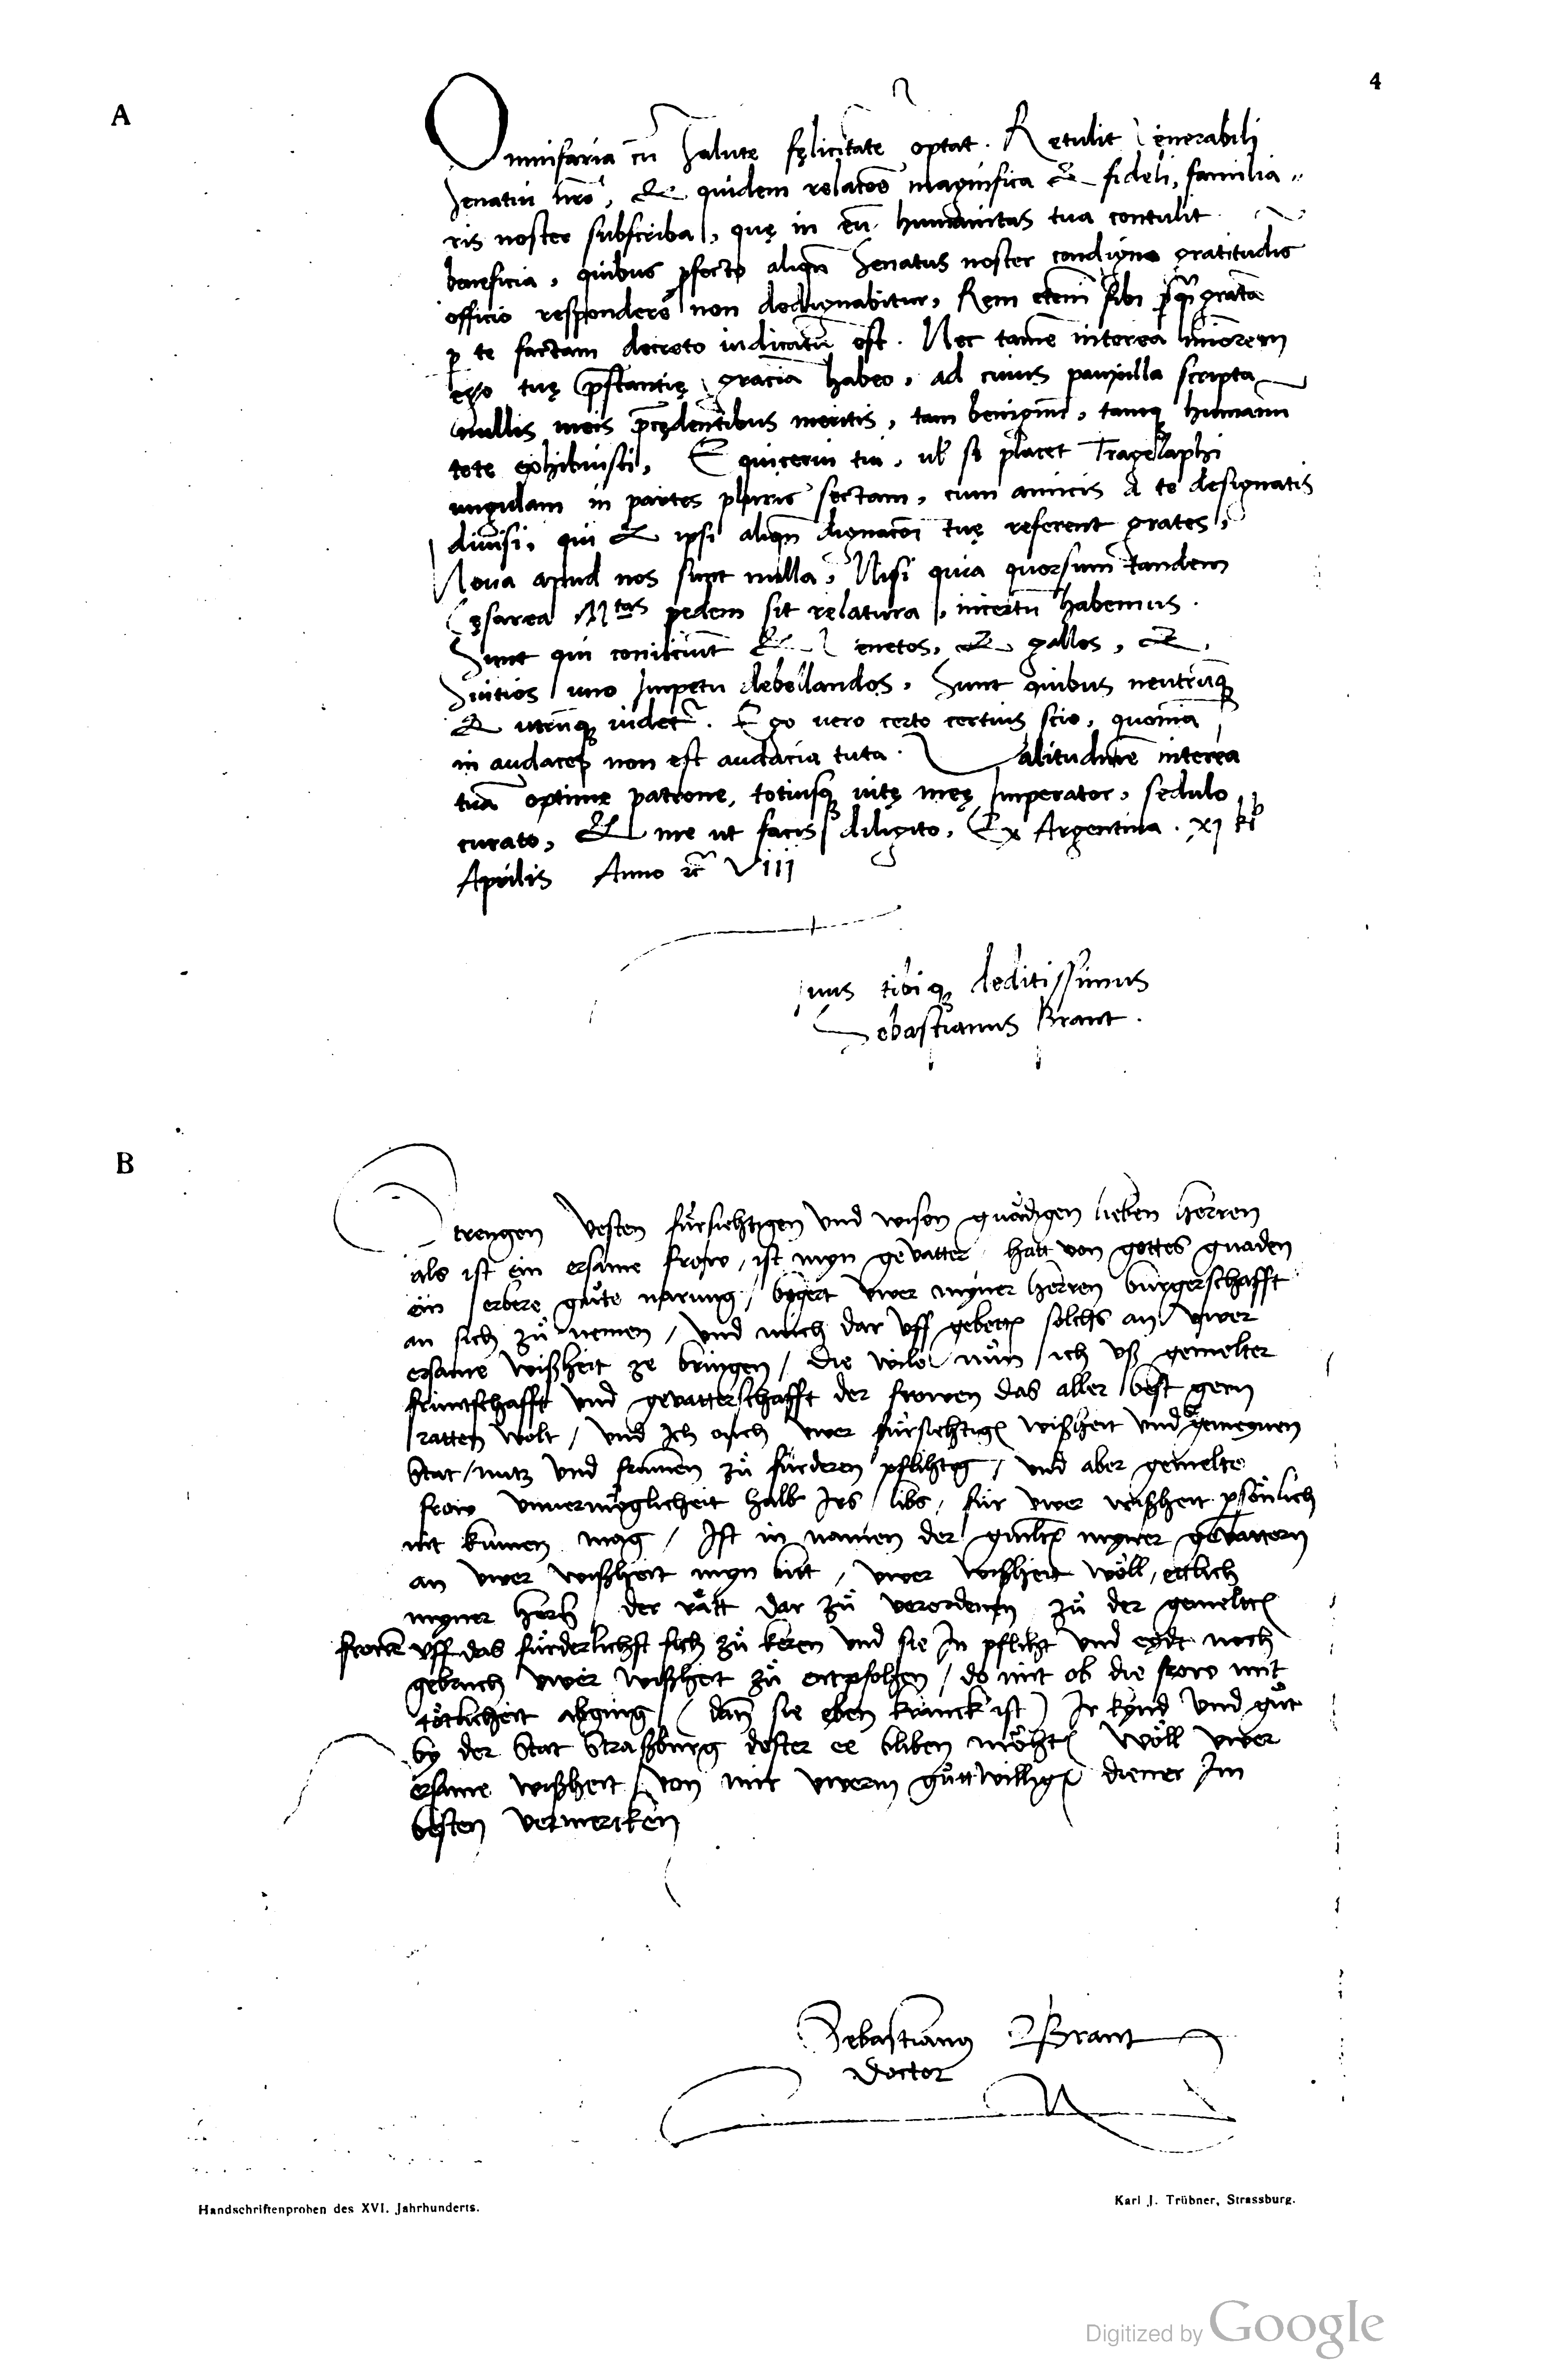 4
A
Omnifaria cū Salute fęlicitatē optat. Retulit Venerabili
Senatui nr̄o, & quidem relatōē magnifica & fideli, familia„
ris noster subscriba, quę in eū humanitas tua contulit
beneficia, quibus ꝓfecto aliqn̄ Senatus noster condigno gratitudīs
officio respondere non dedignabitur, Rem etenī sibi gratā
ꝑ te factam decreto iudicatū est. Nec tamē interea minorem
ego tuę p̄stantię graciā habeo, ad cuius pauxilla scripta
nullis meis p̄cędentibus meritis, tam benignū, tamq; humanū
tete exhibuisti, Equicerui tui, ul' si placet Tragelaphi
ungulam in partes plures sectam, cum amicis a te designatis
diuisi, qui & ipsi aliqn̄ dignacōi tuę referent grates,
Noua apud nos sunt nulla, Nisi quia quorsum tandem
Cęsarea Mtas pedem sit relatura, incertū habemus.
Sunt qui coniiciunt & Venetos, & gallos, &
Suitios uno Impetu debellandos, Sunt quibus neutrūq;
& utrūq; uidet̄. Ego vero certo certius scio, quoniā
in audaces non est audacia tuta. Valitudinē interea
tuā optime patrone, totiusq; uitę meę Imperator, sedulo
curato, Et me ut facis diligito, Ex Argentina. xj kl'
Aprilis Anno rc̄ Viij
Tuus tibiq; deditissimus
Sebastianus Brant.
B
Strengen Vesten fürsichtigen Vnd wisen gnädigen lieben Herren
als ist ein ersame frow, ist myn gevatter hatt von gottes gnaden
ein erbere gůte narung, begert vwer myner Herren burgerschafft
an sich zů nemen, Vnd mich dar Vff gebettē solchs an Vwer
ersame wißheit ze bringen, Die wile nůn ich vß gemelter
früntschafft Vnd gevatterschafft der frowen das aller best gern
ratten wolt, Vnd Ich ouch vwer fürsichtigē wißheit Vnd gemeynen
Stat nutz Vnd frūmen zů fürderen pflihtig, Vnd aber gemelte
frow Vnuermöglicheit halb Irs libs, für vwer wißheit ꝑsönlich
nit kūmen mag, Ist in namen der gmltē myner gevattern
an vwer wißheit myn bitt, vwer wißheit wöll, ettlich
myner Herrē der rätt dar zů verordenen zů der gemeltē
frowen Vff das fürderlichst sich zů keren Vnd sie In pfliht Vnd eydt noch
gebruch vwer wißheit zů entpfohen, do mit ob die frow mit
tötlicheit abging (dañ sie eben kranck ist) Ir kynd Vnd gůt
by der Stat Straßburg dester ee bliben möhtē Wöll Vwer
ersame wißheit Von mir vwerm gůttwilligē diener Im
besten vermercken
Sebastianus Brant
Doctor
Handschriftenproben des XVI. Jahrhunderts.
Karl J. Trübner, Strassburg.
Digitized by Google